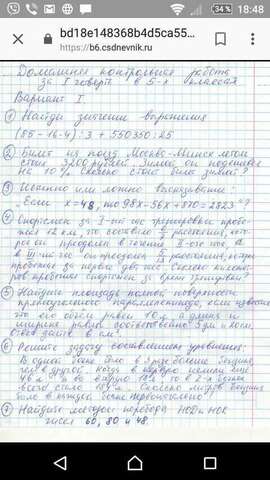 18:48
90be148368b4d5ca55...
https://b6.csdnevnik.ru
Домашняя контрольная работа
за I четверть в 5-х классах
Вариант I.
① Найди значение выражения
(85-16·4):3 + 550350:25
② Билет на поезд Москва-Минск летом
стоил 3200 рублей. Зимой он подешевел
на 10%. Сколько стоит билет зимой?
③ Истинно или ложно высказывание:
„Если x=48, то 98x-56x+870=2823"?
④ Спортсмен за I-ый час тренировки пробе-
жал 12 км, что составило расстояния, кото-
рое он преодолел в течение II-ого часа, а
в III-ий час он преодолел расстояния,
за первые два часа. Сколько километ-
ров спортсмен за время тренировки?
⑤ Найдите площадь полной поверхности
прямоугольного параллелепипеда, если известно
что его объём равен 40 л, а длина и
ширина равны соответственно 5 дм и
в см²
⑥ Решите задачу составлением уравнения:
В одной бочке было в 3 раза больше бензина,
чем в другой. Когда в первую налили ещё
л а во вторую то в 2-х бочках
всего стало Сколько литров бензина
было в каждой бочке первоначально?
⑦ Найдите методом перебора НОД и НОК
чисел 60, 80 и 48.